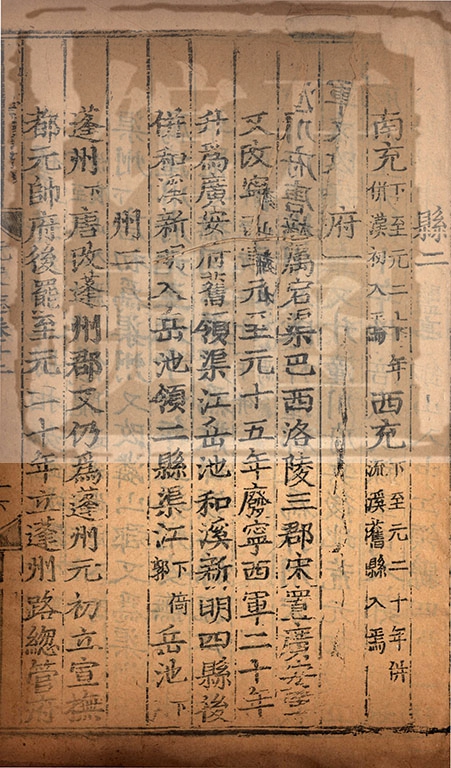 縣二
南充下至元二十年併漢初入焉西充下至元二十年併流溪舊縣入焉
府一
府唐屬宕渠巴西洛陵三郡宋置廣安軍
又改寧軍元至元十五年廢寧西軍二十年
升爲廣安府舊領渠江岳池和溪新明四縣後
併和溪新明入岳池領二縣渠江下倚郭岳池下
州
蓬州下唐改蓬州郡又仍爲蓬州元初立宣撫
都元帥府後罷至元二十年立蓬州路總管府